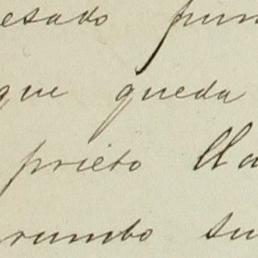 esado pun
que queda
prieto lla
rumbo su